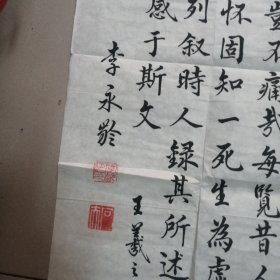 豈不痛哉每覽昔人
懷固知一死生為虛
列叙時人錄其所述
感于斯文
王羲之
李永齡